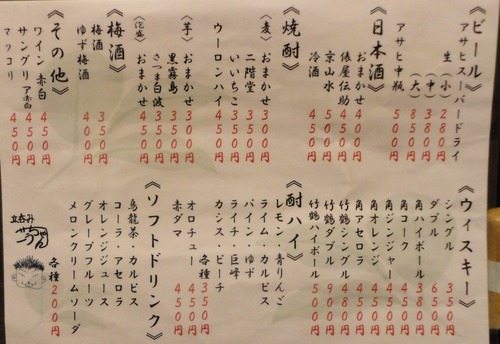 《ビール》
アサヒスーパードライ
生(小) 280円
(中) 350円
(大) 850円
アサヒ中瓶 500円
《日本酒》
おまかせ 400円
俵屋伝助 450円
京山水 500円
冷酒 450円
《焼酎》
(麦) おまかせ 300円
二階堂 350円
いいちこ 350円
ウーロンハイ 350円
(芋) おまかせ 300円
黒霧島 350円
さつま白波 350円
(泡盛) おまかせ 350円
《梅酒》
梅酒 350円
ゆず梅酒 400円
《その他》
ワイン 赤白 450円
サングリア 赤白 450円
マッコリ 400円
《ウィスキー》
シングル 350円
ダブル 650円
角ハイボール 380円
角コーク 400円
角ジンジャー 400円
角オレンジ 450円
角アセロラ 450円
竹鶴シングル 480円
竹鶴ダブル 900円
竹鶴ハイボール 500円
《酎ハイ》
レモン・青りんご
ライム・カルピス
パイン・ゆず
ライチ・巨峰
カシス・ピーチ
各種 350円
オロチュー 450円
赤ダマ 450円
《ソフトドリンク》
烏龍茶・カルピス
コーラ・アセロラ
オレンジジュース
グレープフルーツ
メロンクリームソーダ
各種 200円
立呑み